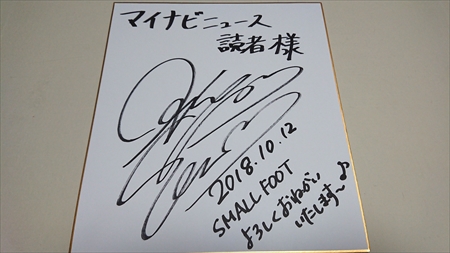 マイナビニュース
読者様
2018.10.12
SMALL FOOT
よろしくおねがい
いたします〜♪